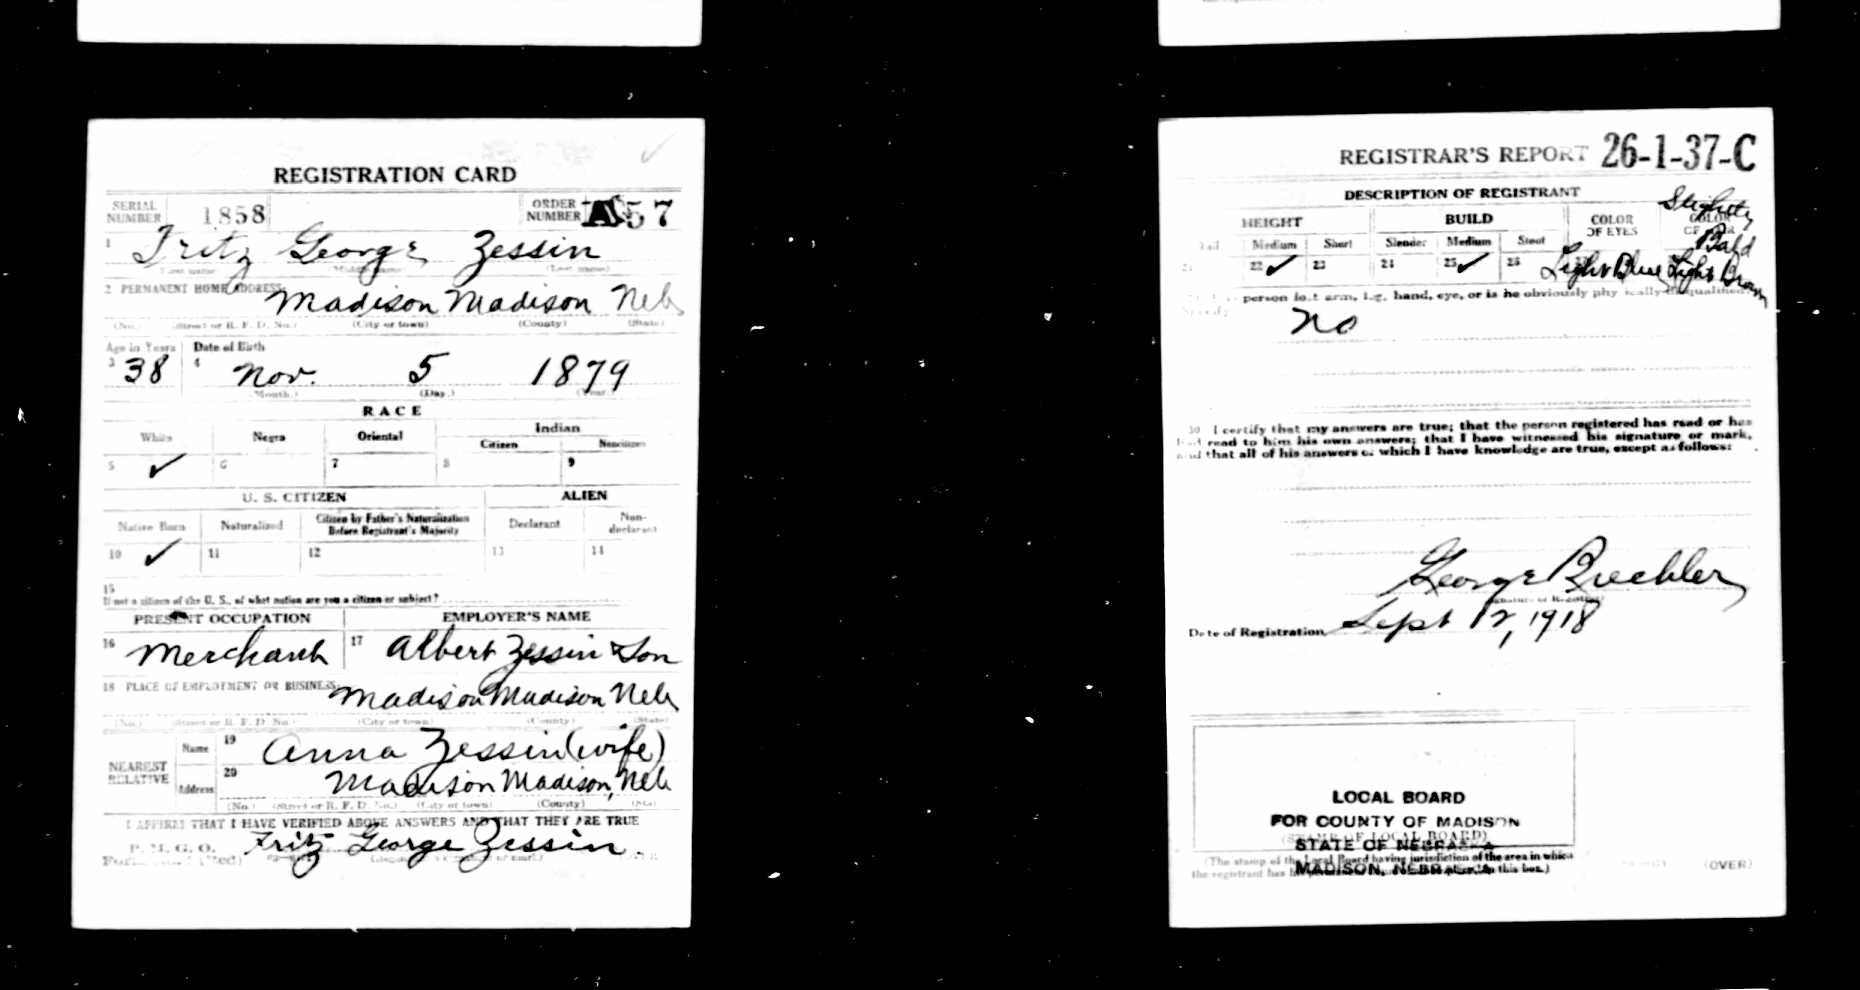 REGISTRATION CARD
SERIAL NUMBER 1858 ORDER NUMBER A57
1 Fritz George Zessin
(First name) (Middle name) (Last name)
2 PERMANENT HOME ADDRESS:
Madison Madison Neb
(No.) (Street or R. F. D. No.) (City or town) (County) (State)
Age in Years Date of Birth
3 38 4 Nov. 5 1879
(Month.) (Day.) (Year.)
RACE
White Negro Oriental Indian
Citizen Noncitizen
5 ✓ 6 7 8 9
U. S. CITIZEN ALIEN
Native Born Naturalized Citizen by Father's Naturalization Before Registrant's Majority Declarant Non-declarant
10 ✓ 11 12 13 14
15
If not a citizen of the U. S., of what nation are you a citizen or subject?
PRESENT OCCUPATION EMPLOYER'S NAME
16 Merchant 17 Albert Zessin & Son
18 PLACE OF EMPLOYMENT OR BUSINESS:
Madison Madison Neb
(No.) (Street or R. F. D. No.) (City or town) (County) (State)
NEAREST RELATIVE
Name 19 Anna Zessin (wife)
Address 20 Madison Madison, Neb
(No.) (Street or R. F. D. No.) (City or town) (County) (State)
I AFFIRM THAT I HAVE VERIFIED ABOVE ANSWERS AND THAT THEY ARE TRUE
P. M. G. O.
Fritz George Zessin.
REGISTRAR'S REPORT 26-1-37-C
DESCRIPTION OF REGISTRANT
HEIGHT BUILD COLOR OF EYES COLOR OF HAIR
Slightly Bald
Tall Medium Short Slender Medium Stout
21 22 ✓ 23 24 25 ✓ 26 Light Blue Light Brown
person lost arm, leg, hand, eye, or is he obviously physically disqualified?
No
30 I certify that my answers are true; that the person registered has read or has
had read to him his own answers; that I have witnessed his signature or mark,
and that all of his answers of which I have knowledge are true, except as follows:
George
(Signature of Registrar)
Date of Registration Sept 12, 1918
LOCAL BOARD
FOR COUNTY OF MADISON
(STAMP OF LOCAL BOARD)
STATE OF NEBRASKA
MADISON, NEBRASKA
(The stamp of the Local Board having jurisdiction of the area in which
the registrant has his permanent home in this box.)
(OVER)